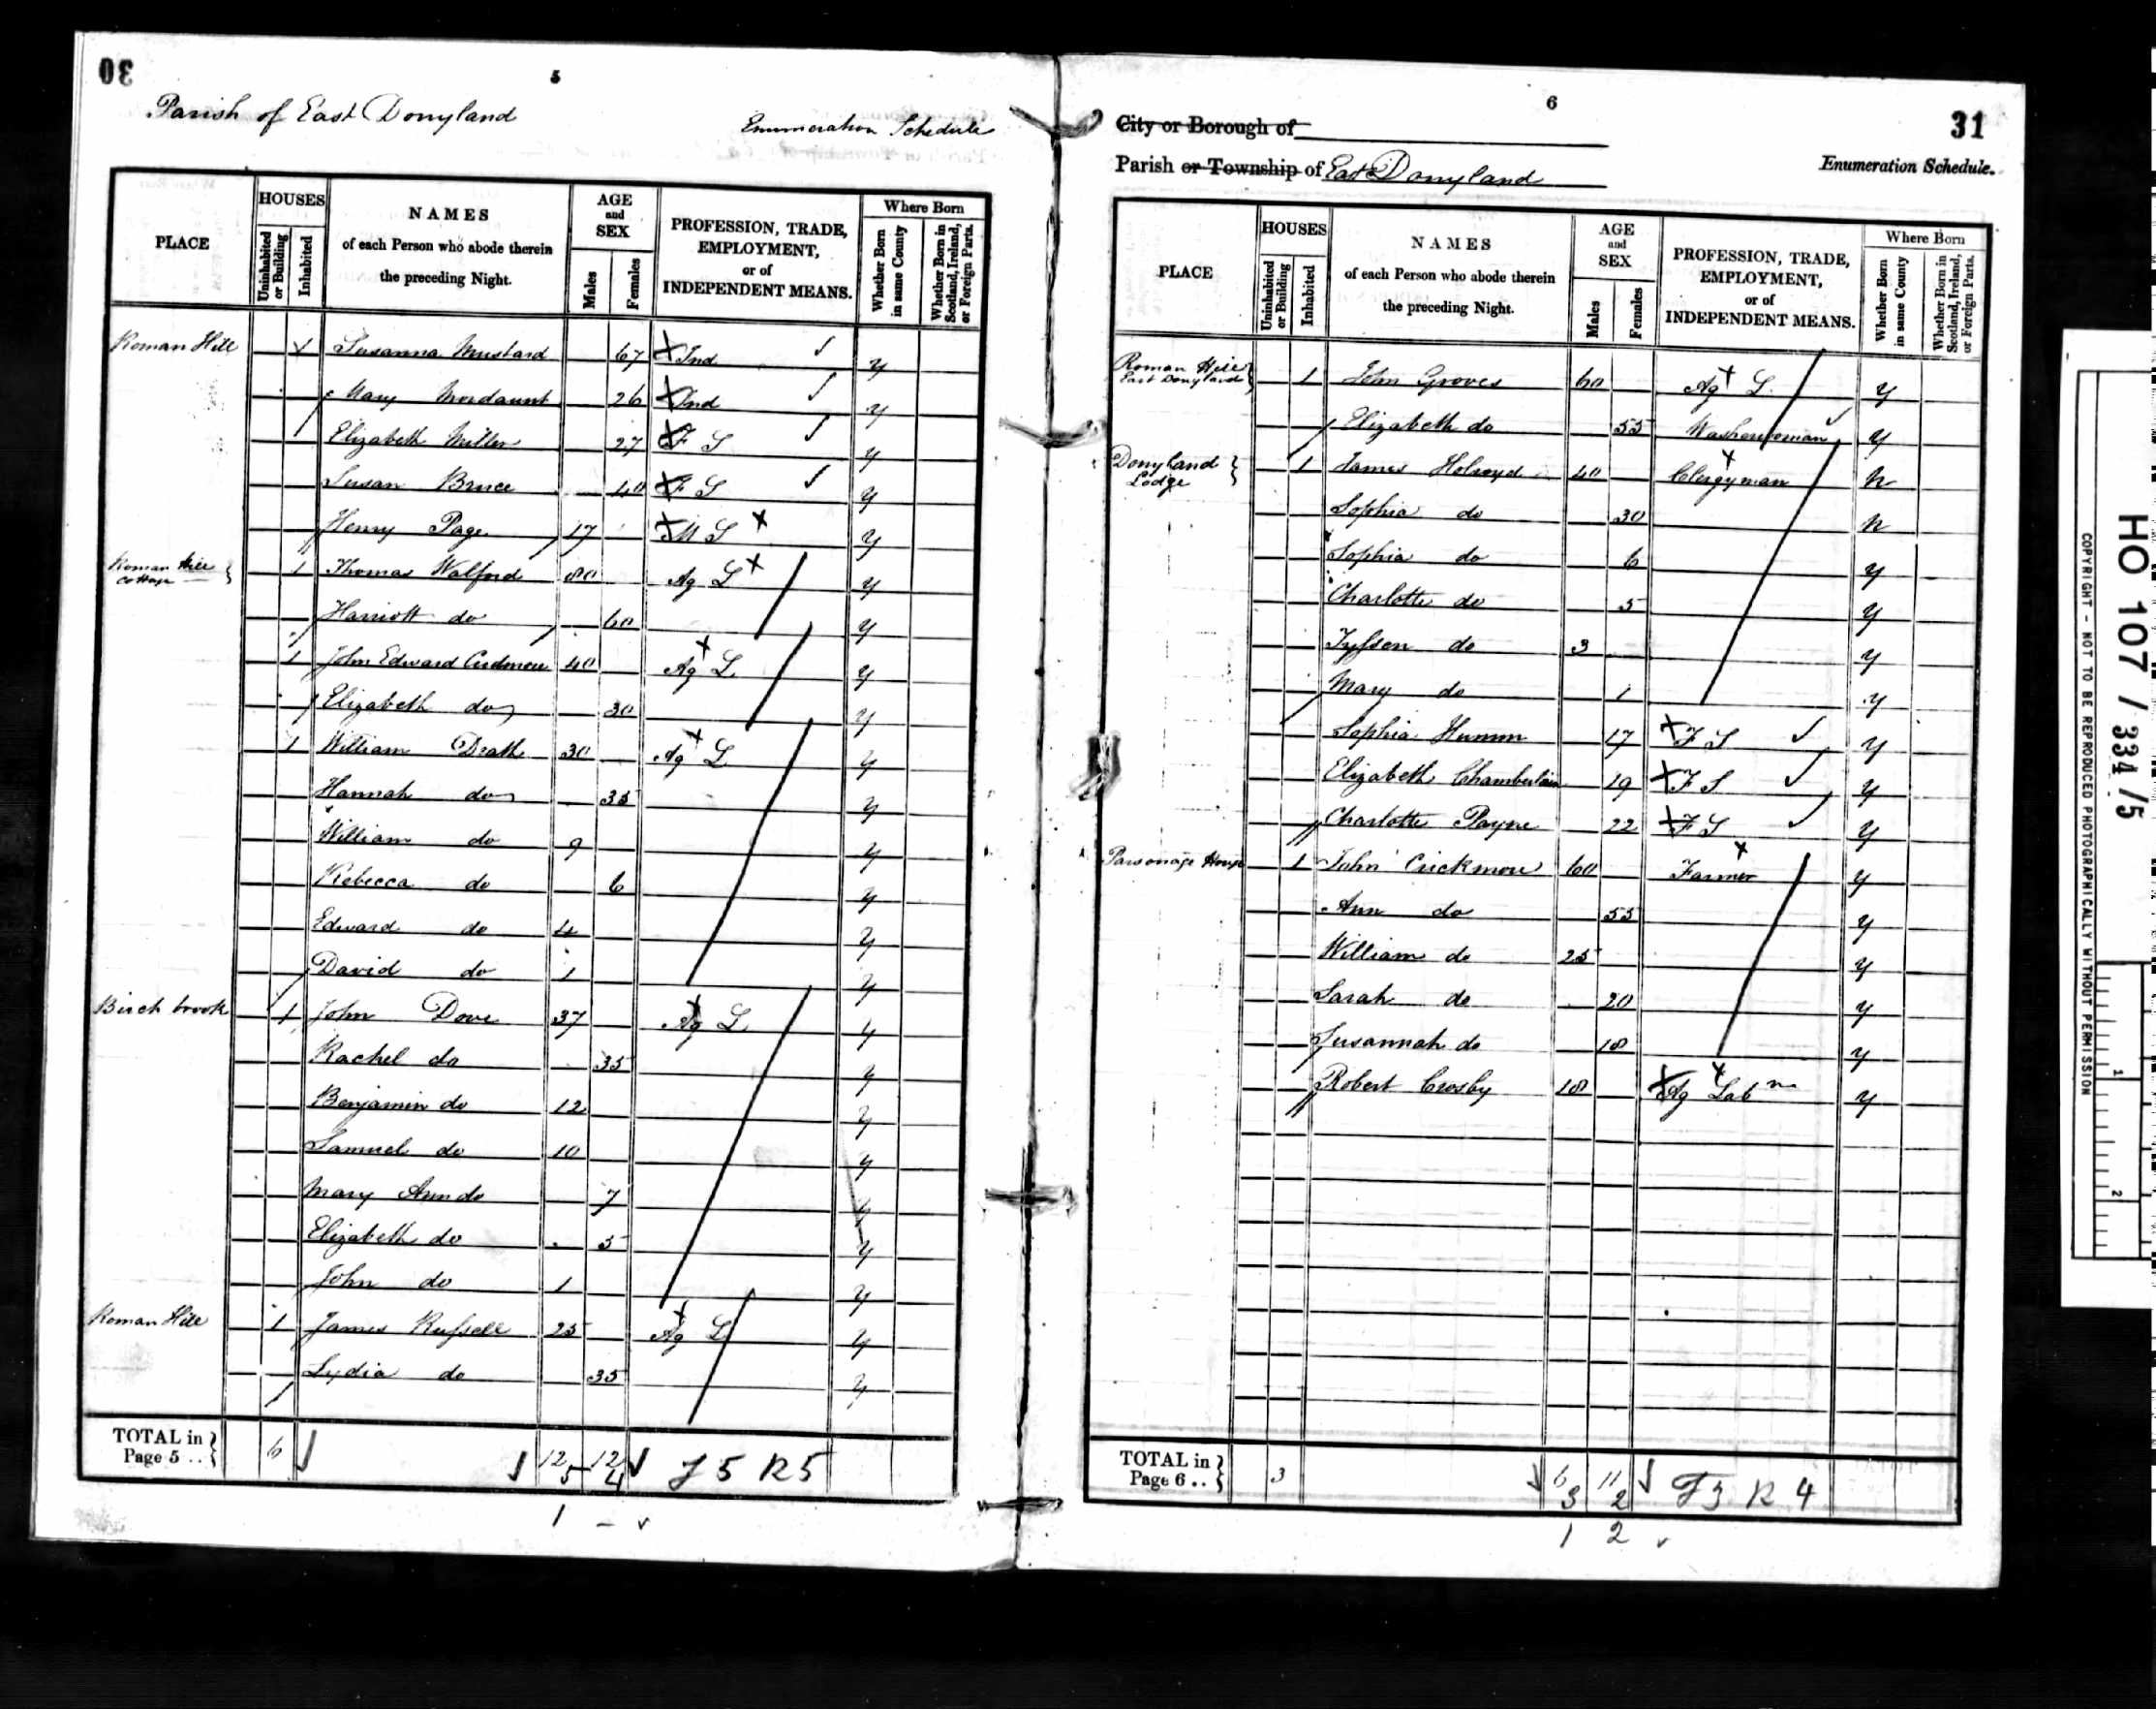 30
5
Parish of East Donyland
Enumeration Schedule
PLACE
HOUSES
Uninhabited or Building
Inhabited
NAMES
of each Person who abode therein
the preceding Night.
AGE and SEX
Males
Females
PROFESSION, TRADE, EMPLOYMENT, or of INDEPENDENT MEANS.
Where Born
Whether Born in same County
Whether Born in Scotland, Ireland, or Foreign Parts.
Roman Hill 1 Susanna Mustard 67 Ind y
Mary Mordaunt 26 Ind y
Elizabeth Miller 27 F S y
Susan Bruce 40 F S y
Henry Page 17 M S y
Roman Hill Cottage 1 Thomas Walford 80 Ag L y
Harriott do 60 y
1 John Edward Cudmore 40 Ag L y
Elizabeth do 30 y
1 William Death 30 Ag L y
Hannah do 35 y
William do 9 y
Rebecca do 6 y
Edward do 4 y
David do 1 y
Birch brook 1 John Dove 37 Ag L y
Rachel do 35 y
Benjamin do 12 y
Samuel do 10 y
Mary Ann do 7 y
Elizabeth do 5 y
John do 1 y
Roman Hill 1 James Russell 25 Ag L y
Lydia do 35 y
TOTAL in Page 5 .. 6 12 12
5 4 F 5 R 5
1 –
6
31
City or Borough of
Parish or Township of East Donyland
Enumeration Schedule.
PLACE
HOUSES
Uninhabited or Building
Inhabited
NAMES
of each Person who abode therein
the preceding Night.
AGE and SEX
Males
Females
PROFESSION, TRADE, EMPLOYMENT, or of INDEPENDENT MEANS.
Where Born
Whether Born in same County
Whether Born in Scotland, Ireland, or Foreign Parts.
Roman Hill East Donyland 1 John Groves 60 Ag L. y
Elizabeth do 55 Washerwoman y
Donyland Lodge 1 James Holroyd 40 Clergyman n
Sophia do 30 n
Sophia do 6 y
Charlotte do 5 y
Tyssen do 3 y
Mary do 1 y
Sophia Humm 17 F S y
Elizabeth Chamberlain 19 F S y
Charlotte Payne 22 F S y
Parsonage House 1 John Crickmore 60 Farmer y
Ann do 55 y
William do 25 y
Sarah do 20 y
Susannah do 18 y
Robert Crosby 18 Ag Lab y
TOTAL in Page 6 .. 3 6 11
3 2 F 3 R 4
1 2
HO 107 / 334/5
COPYRIGHT - NOT TO BE REPRODUCED PHOTOGRAPHICALLY WITHOUT PERMISSION
1
2